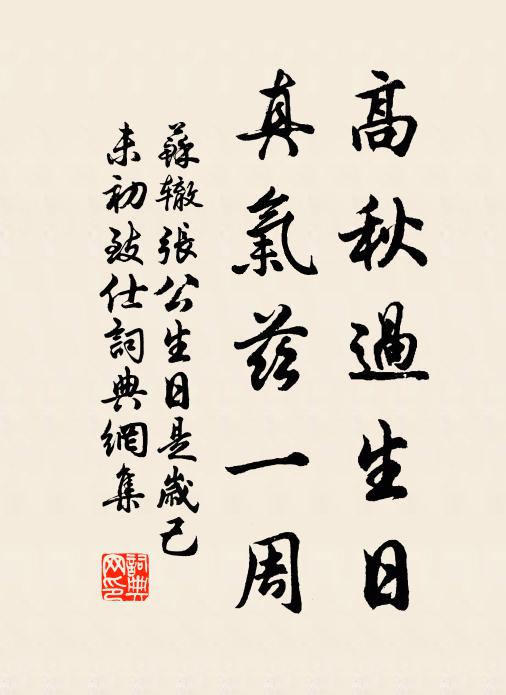 高秋過生日
真氣茲一周
蘇辙張公生日是歲己
未初致仕詞典網集
詞典
网印